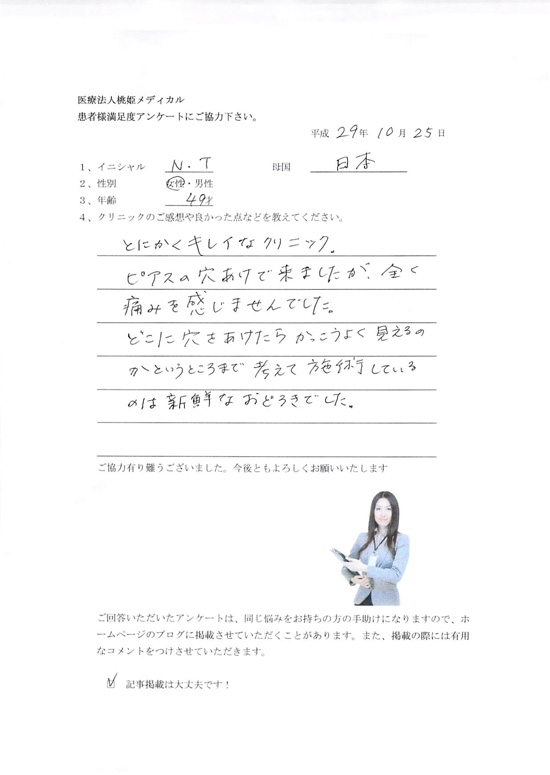 医療法人桃姫メディカル
患者様満足度アンケートにご協力下さい。
平成 29年 10月 25日
1、イニシャル N.T 母国 日本
2、性別 女性・男性
3、年齢 49才
4、クリニックのご感想や良かった点などを教えてください。
とにかくキレイなクリニック。
ピアスの穴あけで来ましたが、全く
痛みを感じませんでした。
どこに穴をあけたら かっこうよく見えるの
かというところまで 考えて 施術している
のは新鮮な おどろきでした。
ご協力有り難うございました。今後ともよろしくお願いいたします
ご回答いただいたアンケートは、同じ悩みをお持ちの方の手助けになりますので、ホ
ームページのブログに掲載させていただくことがあります。また、掲載の際には有用
なコメントをつけさせていただきます。
☑ 記事掲載は大丈夫です！